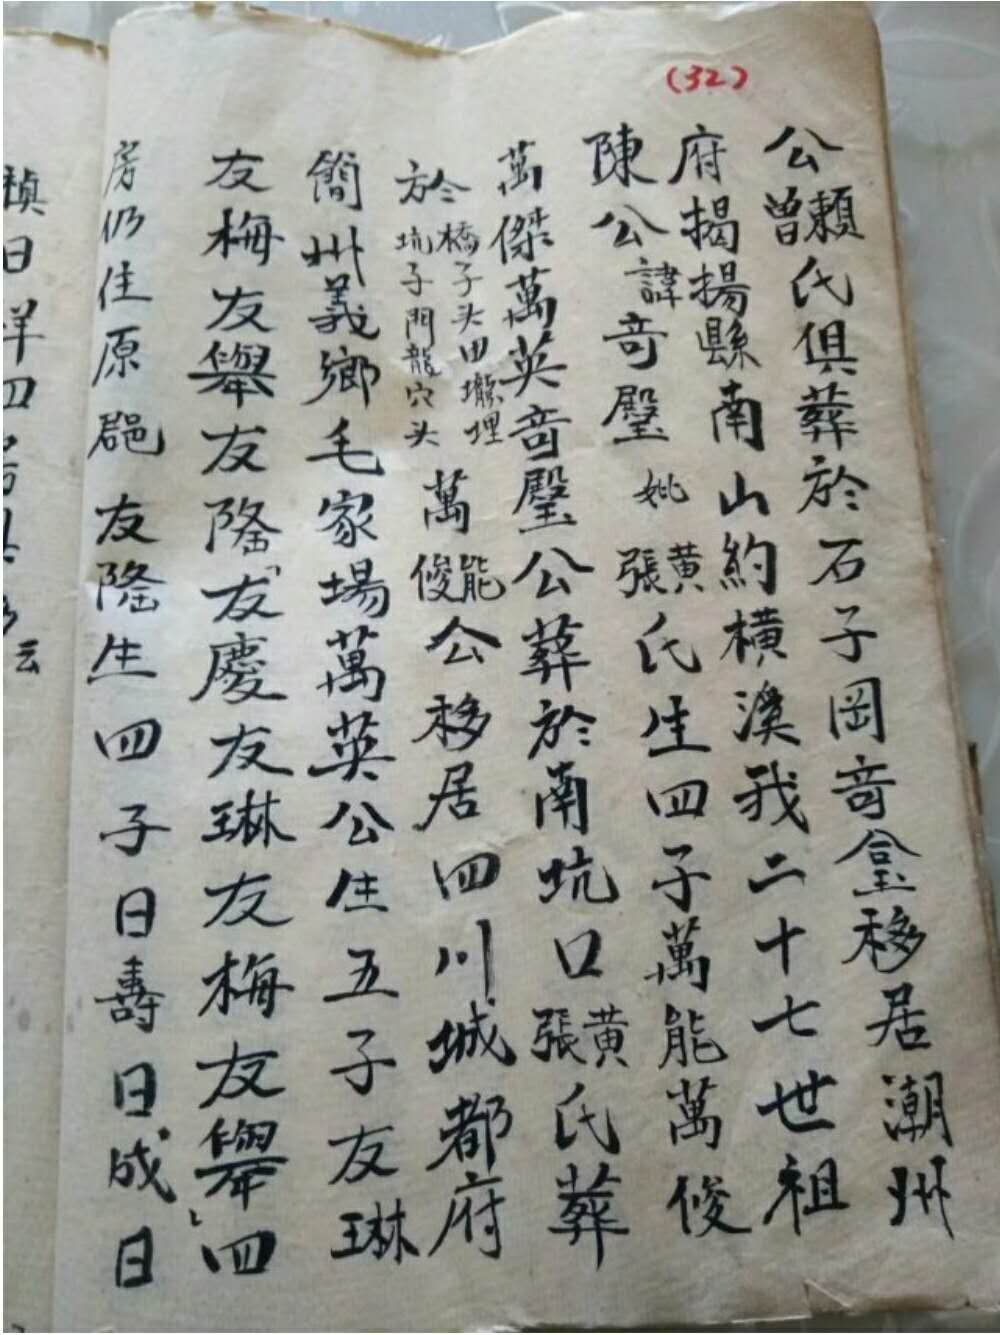 (32)
公賴曾氏俱葬於石子岡奇玺移居潮州
府揭揚縣南山約橫溪我二十七世祖
陳公諱奇壂妣黄張氏生四子萬能萬俊
萬傑萬英奇壂公葬於南坑口黄張氏葬
於橋子头田壠埋坑子門龍穴头萬能俊公移居四川城都府
簡州義鄉毛家場萬英公生五子友琳
友梅友舉友隆友慶友琳友梅友舉四
房仍住原郡友隆生四子日壽日成日
禎日祥四